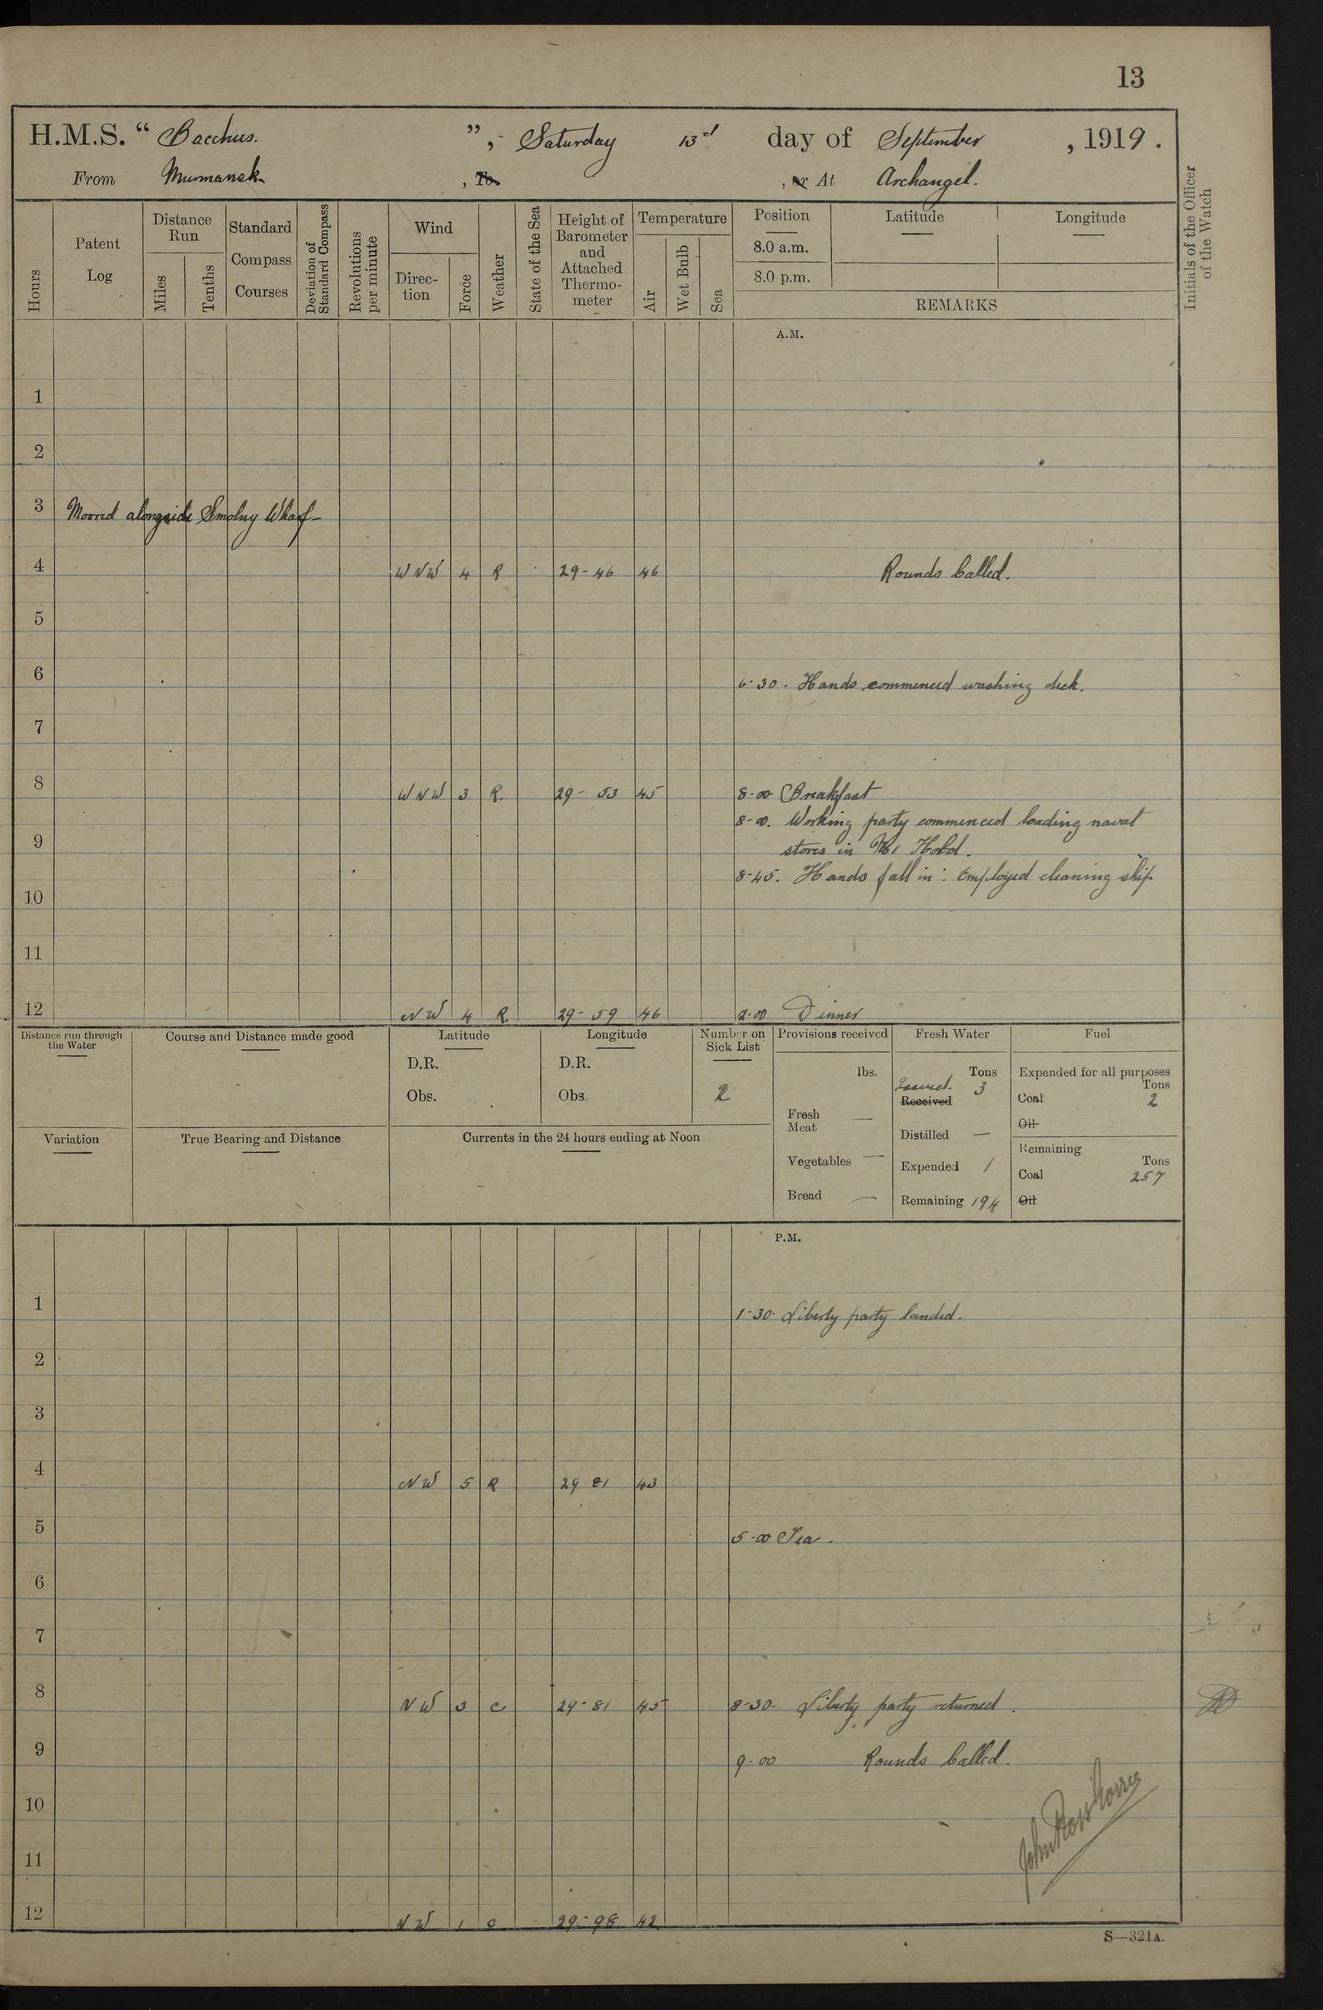 13
H.M.S. “ Bacchus. ”, Saturday 13th day of September, 1919.
From Murmansk, To, or At Archangel.
Hours
Patent Log
Distance Run
Miles
Tenths
Standard Compass Courses
Deviation of Standard Compass
Revolutions per minute
Wind
Direc-tion
Force
Weather
State of the Sea
Height of Barometer and Attached Thermo-meter
Temperature
Air
Wet Bulb
Sea
Position
8.0 a.m.
8.0 p.m.
Latitude
Longitude
REMARKS
Initials of the Officer of the Watch
A.M.
1
2
3 Moored alongside Smolny Wharf
4 WNW 4 R 29-46 46 Rounds Called.
5
6 6-30. Hands commenced washing deck.
7
8 WNW 3 R. 29-53 45 8-00 Breakfast
8-00. Working party commenced loading naval
9 stores in No 1 Hold.
8-45. Hands fall in: Employed cleaning ship
10
11
12 NW 4 R. 29-59 46 Dinner
Distance run through the Water
Course and Distance made good
Latitude
D.R.
Obs.
Longitude
D.R.
Obs.
Number on Sick List
2
Provisions received
lbs.
Fresh Meat —
Vegetables —
Bread —
Fresh Water
Tons
Received 3
Distilled —
Expended 1
Remaining 194
Fuel
Expended for all purposes
Tons
Coal 2
Oil
Remaining
Tons
Coal 257
Oil
Variation
True Bearing and Distance
Currents in the 24 hours ending at Noon
P.M.
1 1-30. Liberty party landed.
2
3
4 NW 5 R 29 81 43
5 5-00 Tea.
6
7
8 NW 3 c 29-81 45 8-30. Liberty party returned.
9 9-00 Rounds Called.
10
11
12 NW 1 c 29-98 42
S—321A.